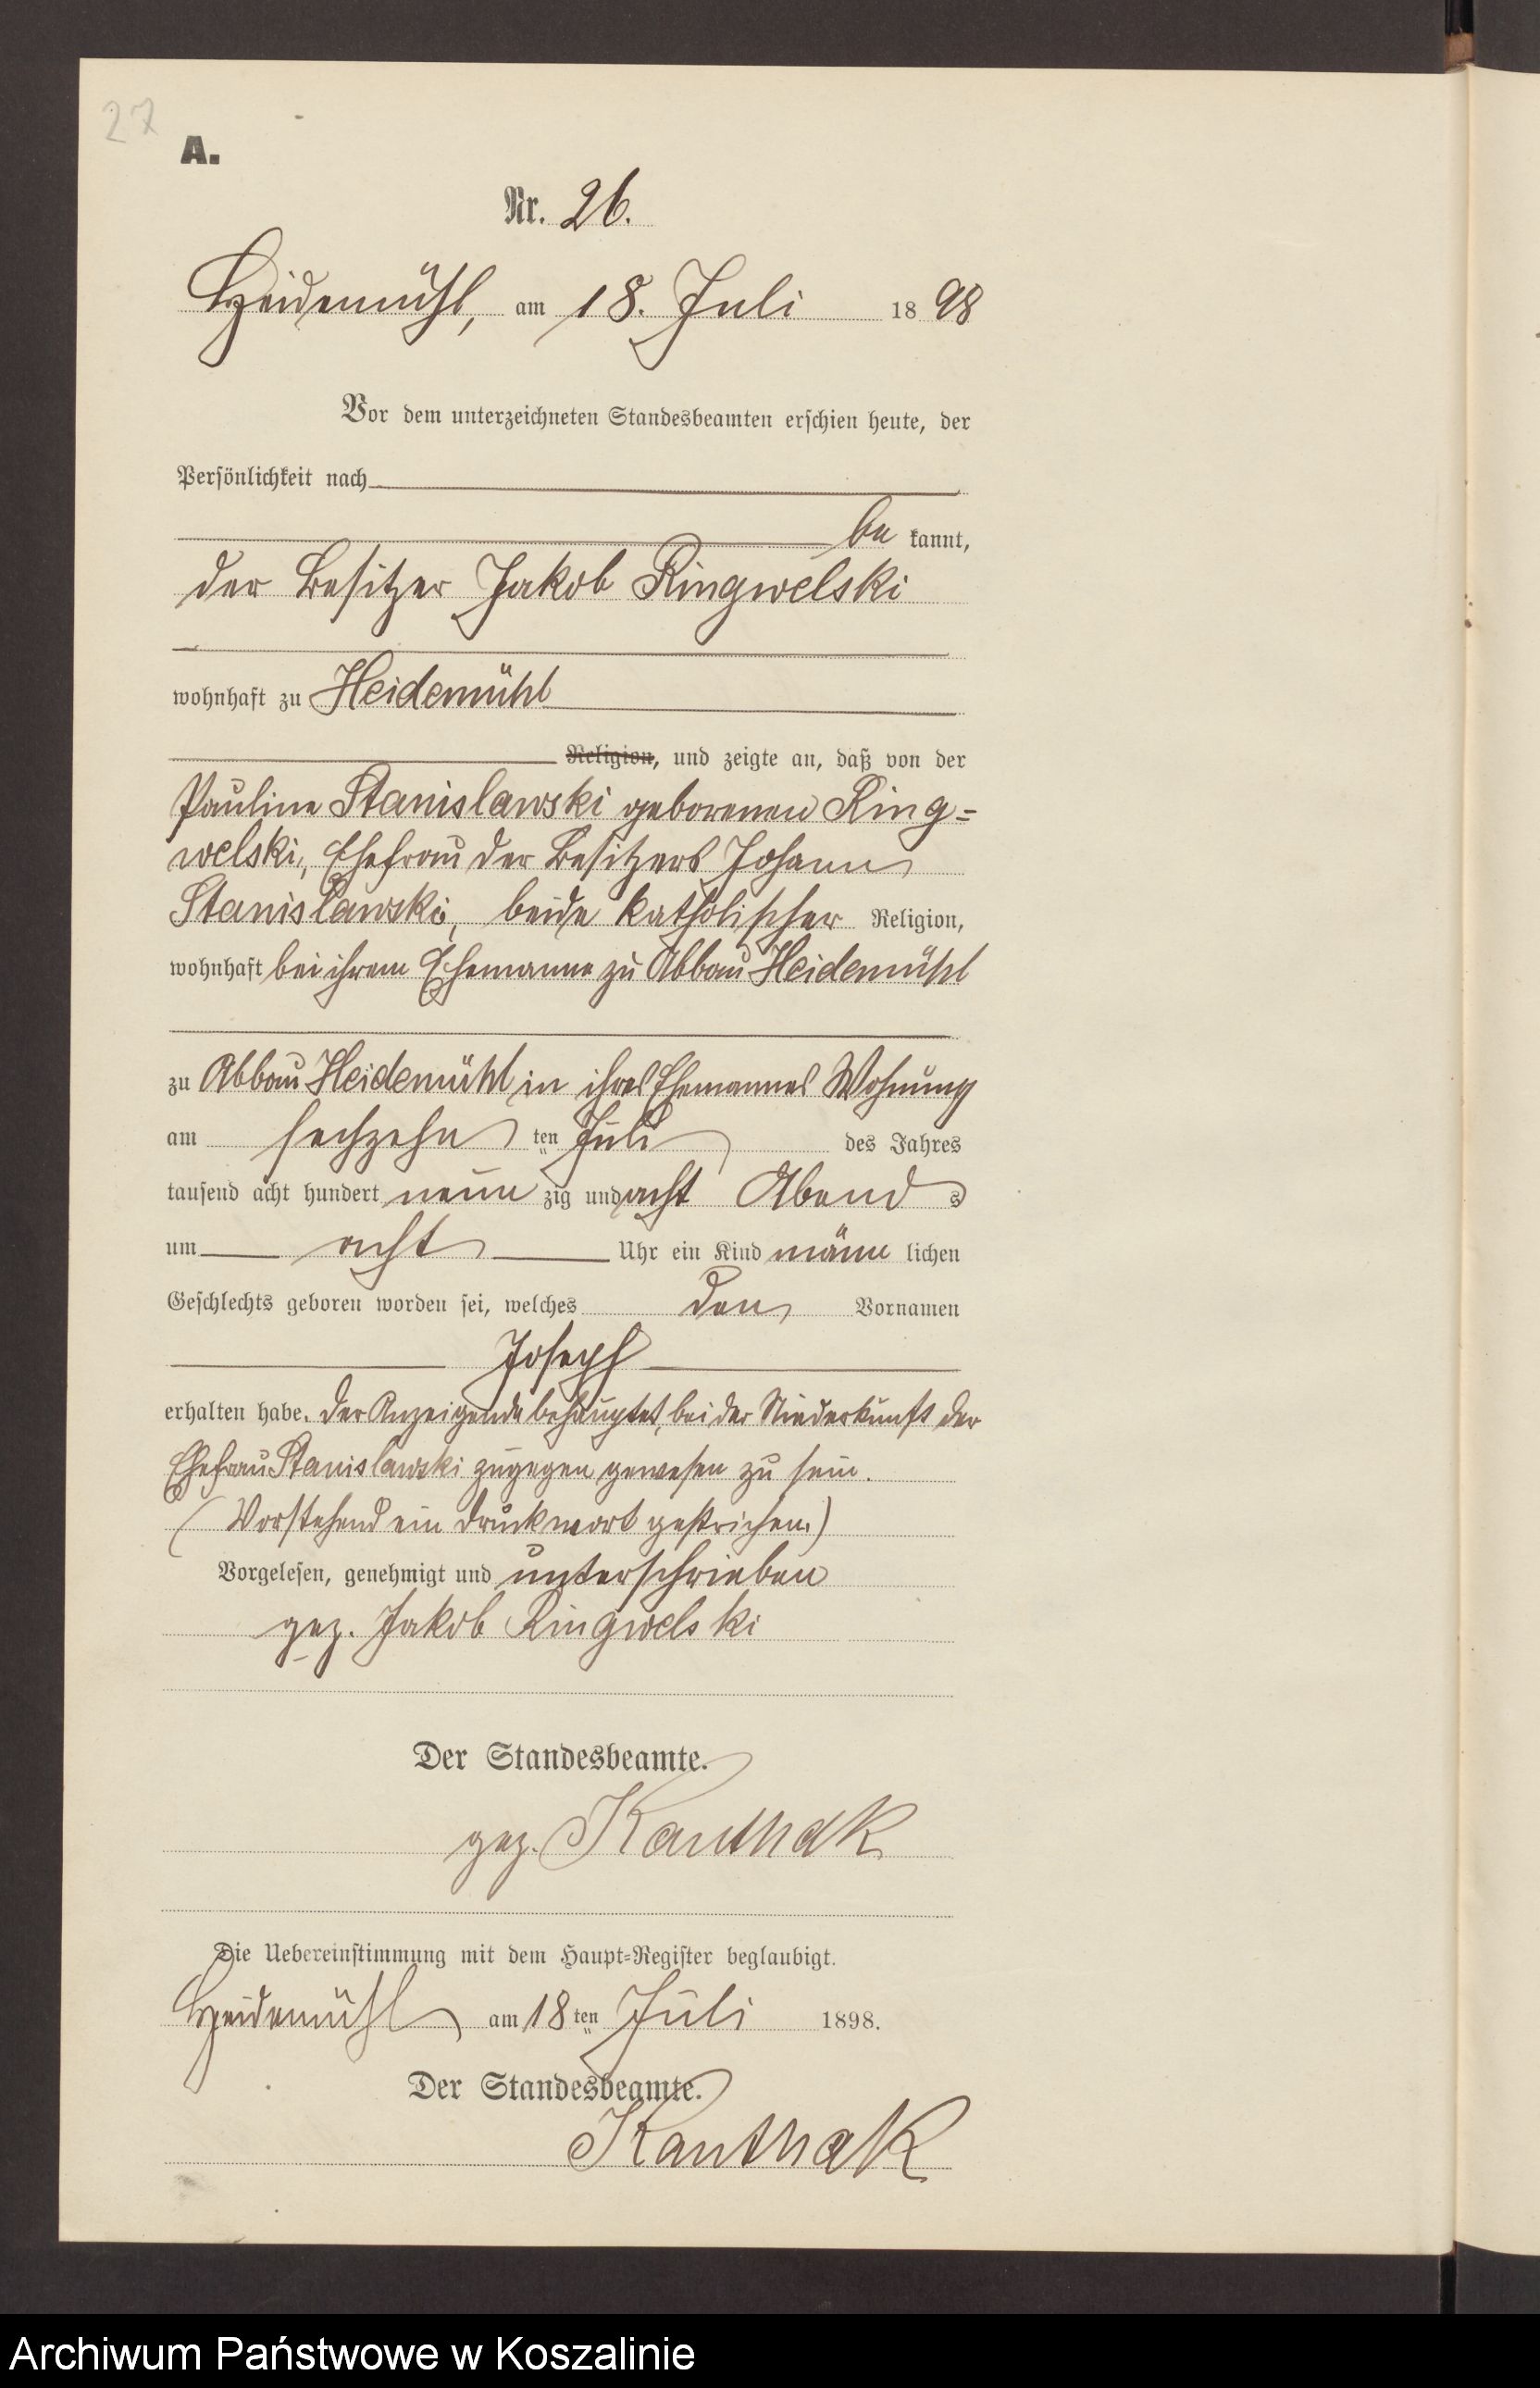 27
A.
Nr. 26.
Heidemühl, am 18. Juli 1898
Vor dem unterzeichneten Standesbeamten erschien heute, der
Persönlichkeit nach
be kannt,
der Besitzer Jakob Ringwelski
wohnhaft zu Heidemühl
Religion, und zeigte an, daß von der
Pauline Stanislawski geborenen Ring=
welski, Ehefrau der Besitzers Johann
Stanislawski, beide katholischer Religion,
wohnhaft bei ihrem Ehemanne zu Abbau Heidemühl
zu Abbau Heidemühl in ihres Ehemannes Wohnung
am sechzehn ten Juli des Jahres
tausend acht hundert neun zig und acht Abend s
um acht Uhr ein Kind männ lichen
Geschlechts geboren worden sei, welches den Vornamen
Joseph
erhalten habe. Der Anzeigende behauptet, bei der Niederkunft der
Ehefrau Stanislawski zugegen gewesen zu sein.
(Vorstehend ein Druckwort gestrichen.)
Vorgelesen, genehmigt und unterschrieben
gez. Jakob Ringwelski
Der Standesbeamte.
gez. Kanthak
Die Uebereinstimmung mit dem Haupt=Register beglaubigt.
Heidemühl am 18 ten Juli 1898.
Der Standesbeamte.
Kanthak
Archiwum Państwowe w Koszalinie